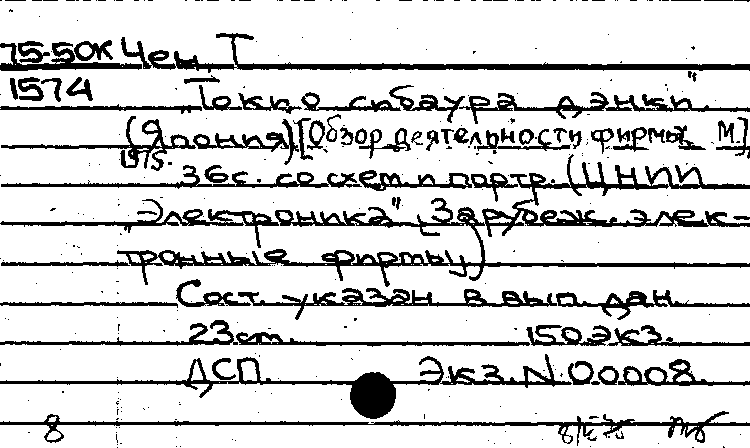 75-50К Чен Т
1574
„Токио сибаура дэнки".
(Япония) [Обзор деятельности фирмы. М.],
1975.
36с. со схем и портр. (ЦНИИ
„Электроника", Зарубеж. элек-
тронные фирмы)
Сост. указан в вып. дан.
23см. 150экз.
ДСП. Экз. N 00008.
8